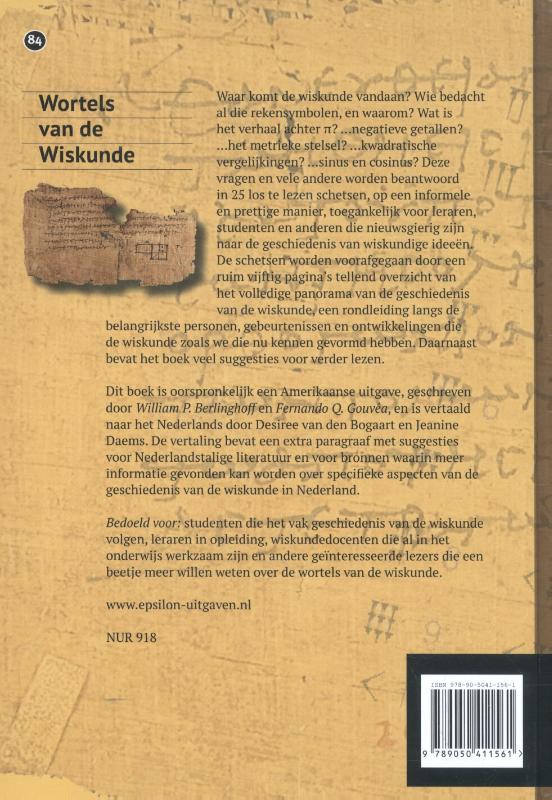 84
Wortels
van de
Wiskunde
Waar komt de wiskunde vandaan? Wie bedacht
al die rekensymbolen, en waarom? Wat is
het verhaal achter π? ...negatieve getallen?
...het metrieke stelsel? ...kwadratische
vergelijkingen? ...sinus en cosinus? Deze
vragen en vele andere worden beantwoord
in 25 los te lezen schetsen, op een informele
en prettige manier, toegankelijk voor leraren,
studenten en anderen die nieuwsgierig zijn
naar de geschiedenis van wiskundige ideeën.
De schetsen worden voorafgegaan door een
ruim vijftig pagina's tellend overzicht van
het volledige panorama van de geschiedenis
van de wiskunde, een rondleiding langs de
belangrijkste personen, gebeurtenissen en ontwikkelingen die
de wiskunde zoals we die nu kennen gevormd hebben. Daarnaast
bevat het boek veel suggesties voor verder lezen.
Dit boek is oorspronkelijk een Amerikaanse uitgave, geschreven
door William P. Berlinghoff en Fernando Q. Gouvêa, en is vertaald
naar het Nederlands door Desiree van den Bogaart en Jeanine
Daems. De vertaling bevat een extra paragraaf met suggesties
voor Nederlandstalige literatuur en voor bronnen waarin meer
informatie gevonden kan worden over specifieke aspecten van de
geschiedenis van de wiskunde in Nederland.
Bedoeld voor: studenten die het vak geschiedenis van de wiskunde
volgen, leraren in opleiding, wiskundedocenten die al in het
onderwijs werkzaam zijn en andere geïnteresseerde lezers die een
beetje meer willen weten over de wortels van de wiskunde.
www.epsilon-uitgaven.nl
NUR 918
ISBN 978-90-5041-156-1
9 789050 411561 >